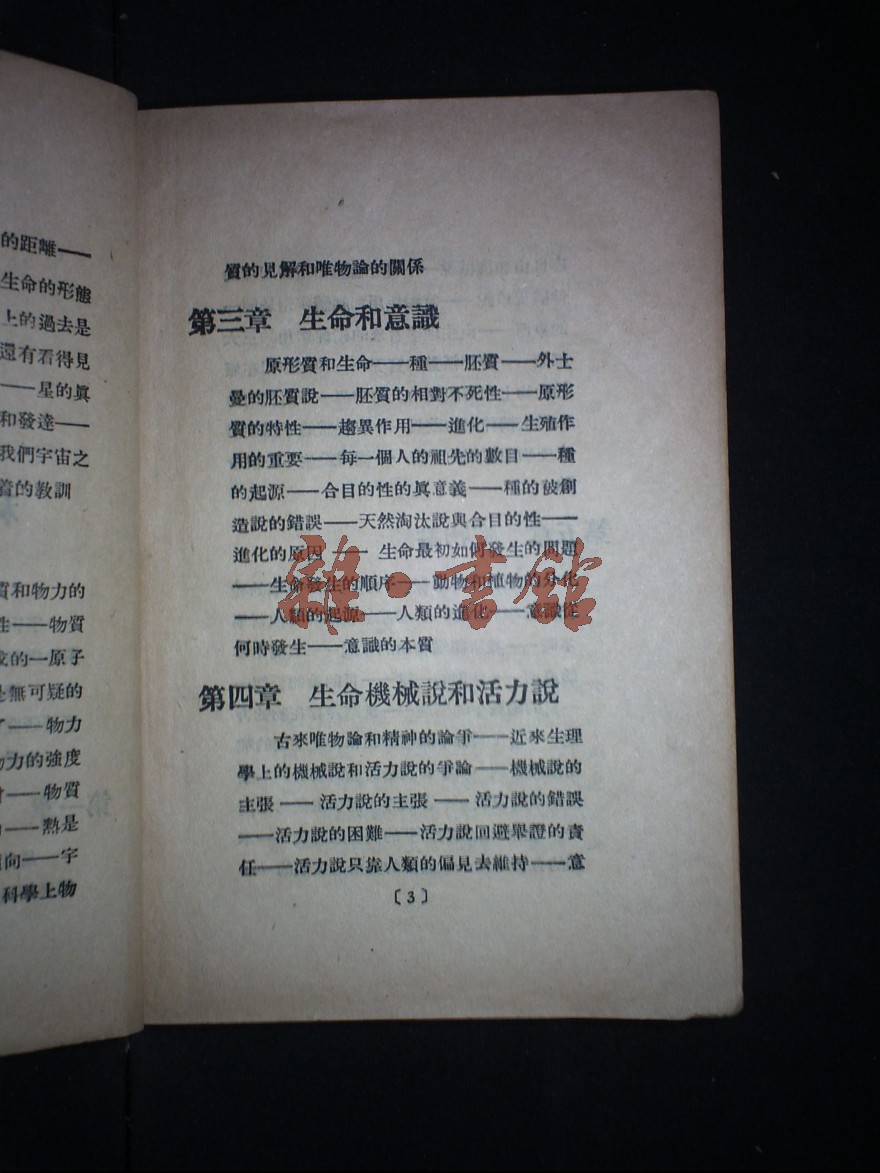 的距離——
生命的形態
上的過去是
還有看得見
——星的眞
和發達——
我們宇宙之
着的教訓
質和物力的
性——物質
成的一原子
是無可疑的
了——物力
物力的強度
——物質
——熱是
向——宇
科學上物
質的見解和唯物論的關係
第三章 生命和意識
原形質和生命——種——胚質——外士
曼的胚質說——胚質的相對不死性——原形
質的特性——趨異作用——進化——生殖作
用的重要——每一個人的祖先的數目——種
的起源——合目的性的眞意義——種的被創
造說的錯誤——天然淘汰說與合目的性——
進化的原因——生命最初如何發生的問題
——生命發生的順序——動物和植物的分化
——人類的起源——人類的進化——意識從
何時發生——意識的本質
第四章 生命機械說和活力說
古來唯物論和精神的論爭——近來生理
學上的機械說和活力說的爭論——機械說的
主張——活力說的主張——活力說的錯誤
——活力說的困難——活力說回避舉證的責
任——活力說只靠人類的偏見去維持——意
〔3〕
雜·書館